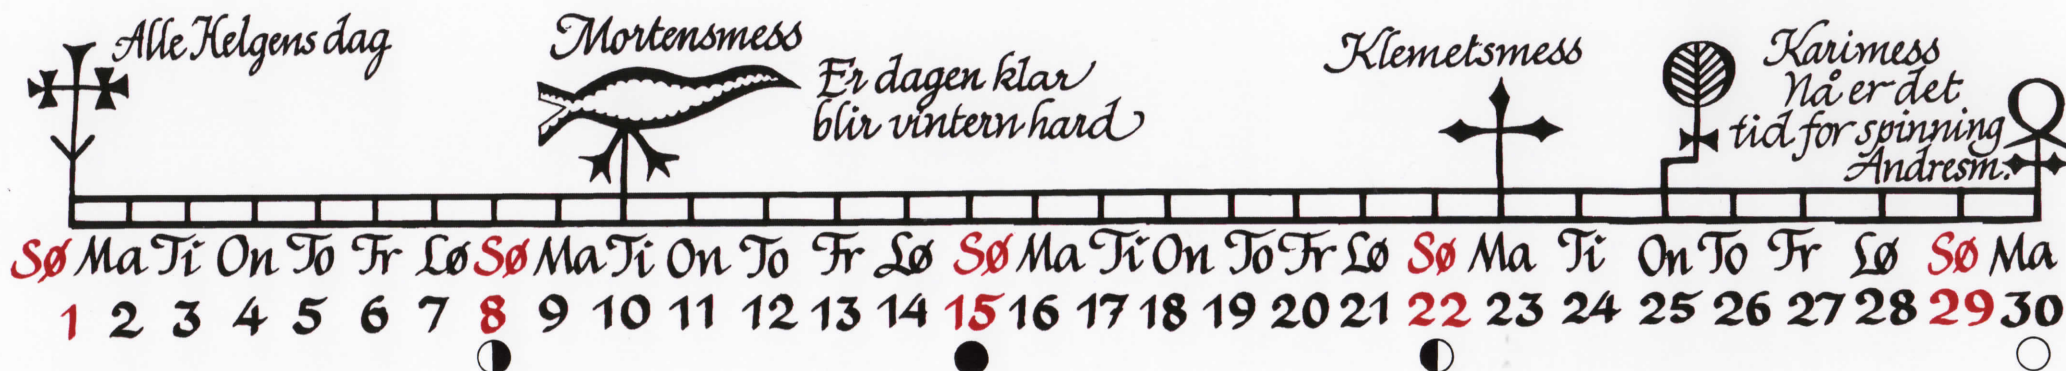 Alle Helgens dag
Mortensmess
Er dagen klar
blir vintern hard
Klemetsmess
Karimess
Nå er det
tid for spinning
Andresm.
Sø Ma Ti On To Fr Lø Sø Ma Ti On To Fr Lø Sø Ma Ti On To Fr Lø Sø Ma Ti On To Fr Lø Sø Ma
1 2 3 4 5 6 7 8 9 10 11 12 13 14 15 16 17 18 19 20 21 22 23 24 25 26 27 28 29 30